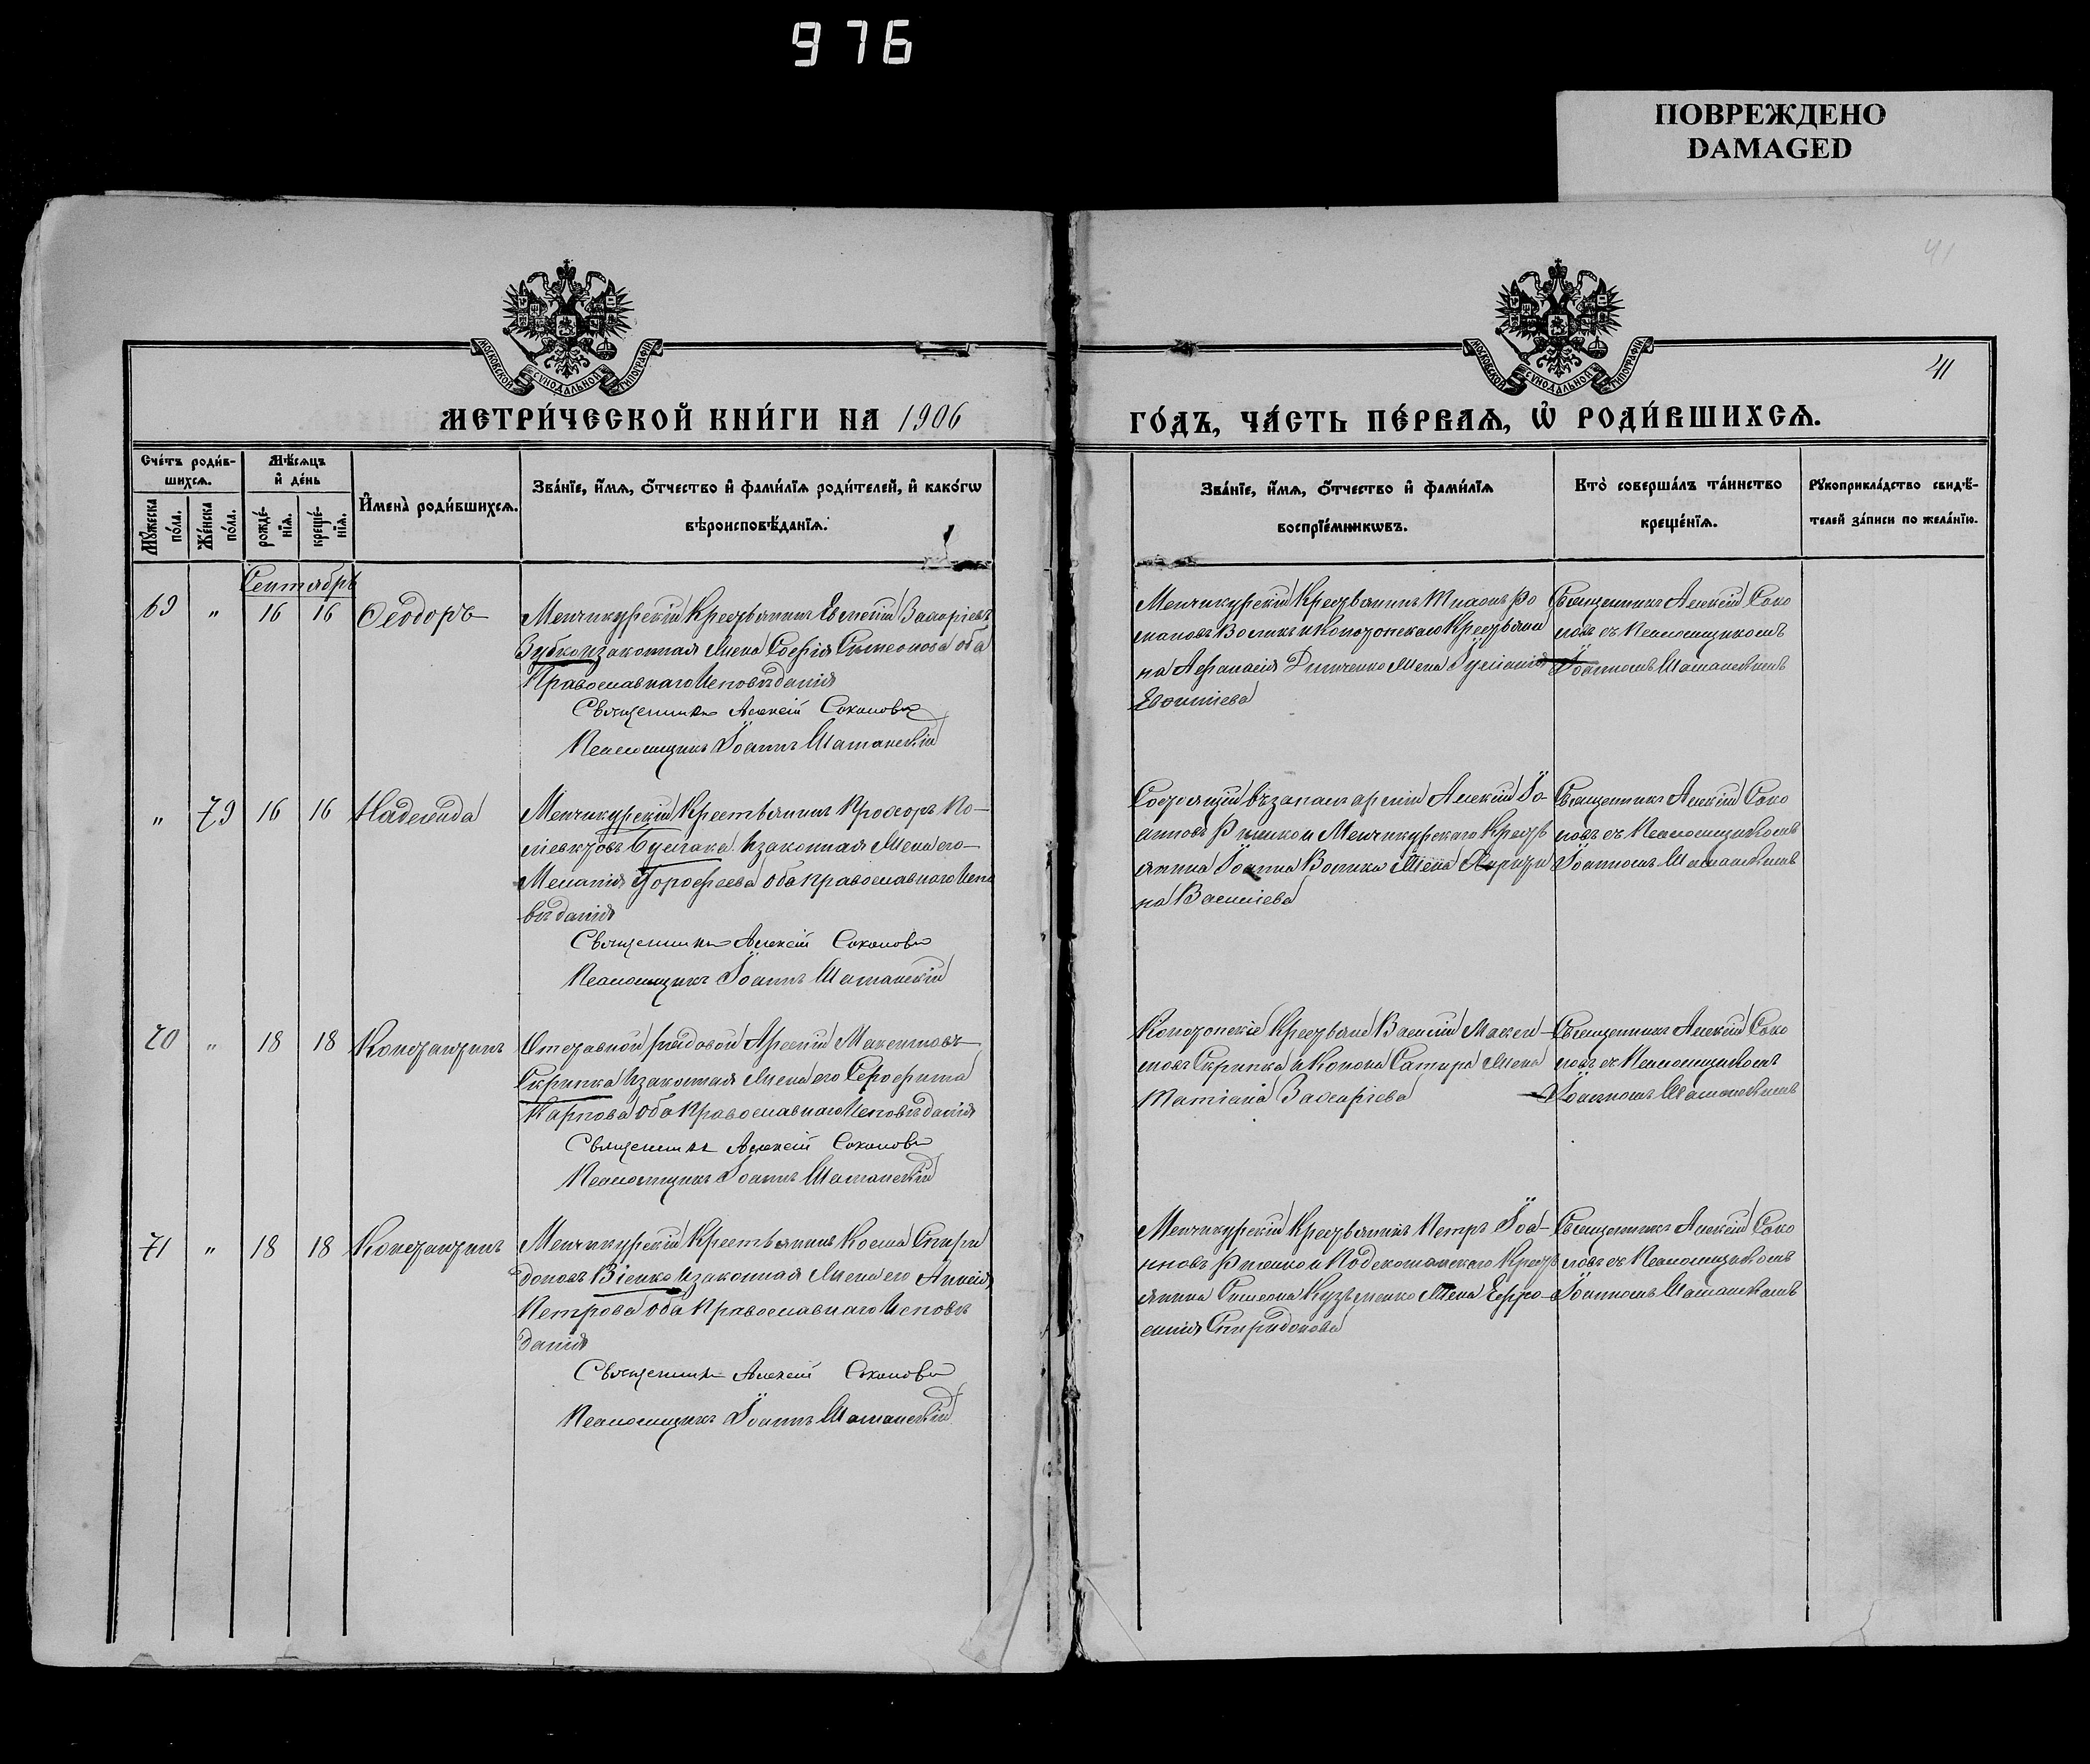 976
ПОВРЕЖДЕНО
DAMAGED
41
41
МОСКОВСКОЙ СѴНОДАЛЬНОЙ ТИПОГРАФІИ
МОСКОВСКОЙ СѴНОДАЛЬНОЙ ТИПОГРАФІИ
МЕТРИ́ЧЕСКОЙ КНИ́ГИ НА 1906
ГО́ДЪ, ЧА́СТЬ ПЕ́РВАѦ, Ѡ҆ РОДИ́ВШИХСѦ.
Сче́тъ роди́в-
шихсѧ.
Мꙋ́жеска
по́ла.
Же́нска
по́ла.
Мѣ́сѧцъ
и҆ де́нь
рожде́-
нїѧ.
креще́-
нїѧ.
И҆мена̀ роди́вшихсѧ.
Зва́нїе, и҆́мѧ, ѻ҆́тчество и҆ фами́лїѧ роди́телей, и҆ како́гѡ
вѣроисповѣ́данїѧ.
Зва́нїе, и҆́мѧ, ѻ҆́тчество и҆ фами́лїѧ
воспрїе́мникѡвъ.
Кто̀ соверша́лъ та́инство
креще́нїѧ.
Рꙋкоприкла́дство свидѣ́-
телей за́писи по жела́нїю.
Сентябрь
69 " 16 16 Ѳеодоръ
Менчикурскій Крестьянинъ Евсевій Захаріевъ
Зубко и законная Жена Софія Симеонова оба
Православнаго Исповѣданія
Священникъ Алексій Соколовъ
Псаломщикъ Іоаннъ Шаманскій
Менчикурскій Крестьянинъ Тихонъ Ро
мановъ Воликъ и Конотопскаго Крестьяни
на Афанасія Жена Іуліанія
Священникъ Алексій Соко
ловъ съ Псаломщикомъ
Іоанномъ Шаманскимъ
" 79 16 16 Надежда
Менчикурскій Крестьянинъ Прохоръ По-
ліевктовъ и законная Жена его
Меланія Дорофеева оба православнаго Испо
вѣданія
Священникъ Алексій Соколовъ
Псаломщикъ Іоаннъ Шаманскій
Состоящій въ запасѣ арміи Алексій Іо-
анновъ и Менчикурскаго Кресть
янина Іоанна Волика Жена Харити
на Васильева
Священникъ Алексій Соко
ловъ съ Псаломщикомъ
Іоанномъ Шаманскимъ
70 " 18 18 Константинъ
Отставной рядовой Арсеній Максимовъ
Скрипка и законная Жена его Серафима
Карпова оба Православнаго Исповѣданія
Священникъ Алексій Соколовъ
Псаломщикъ Іоаннъ Шаманскій
Конотопскіе Крестьяне Василій Макси-
мовъ Скрипка и Конона Сатира Жена
Татіана Захаріева
Священникъ Алексій Соко
ловъ съ Псаломщикомъ
Іоанномъ Шаманскимъ
71 " 18 18 Константинъ
Менчикурскій Крестьянинъ Косма Спири
доновъ Віенко и законная Жена его Анисія
Петрова оба Православнаго Исповѣ
данія
Священникъ Алексій Соколовъ
Псаломщикъ Іоаннъ Шаманскій
Менчикурскій Крестьянинъ Петръ Іоа-
нновъ и Кресть
янина Симеона Кузьменко Жена Евфро-
синія Спиридонова
Священникъ Алексій Соко
ловъ съ Псаломщикомъ
Іоанномъ Шаманскимъ